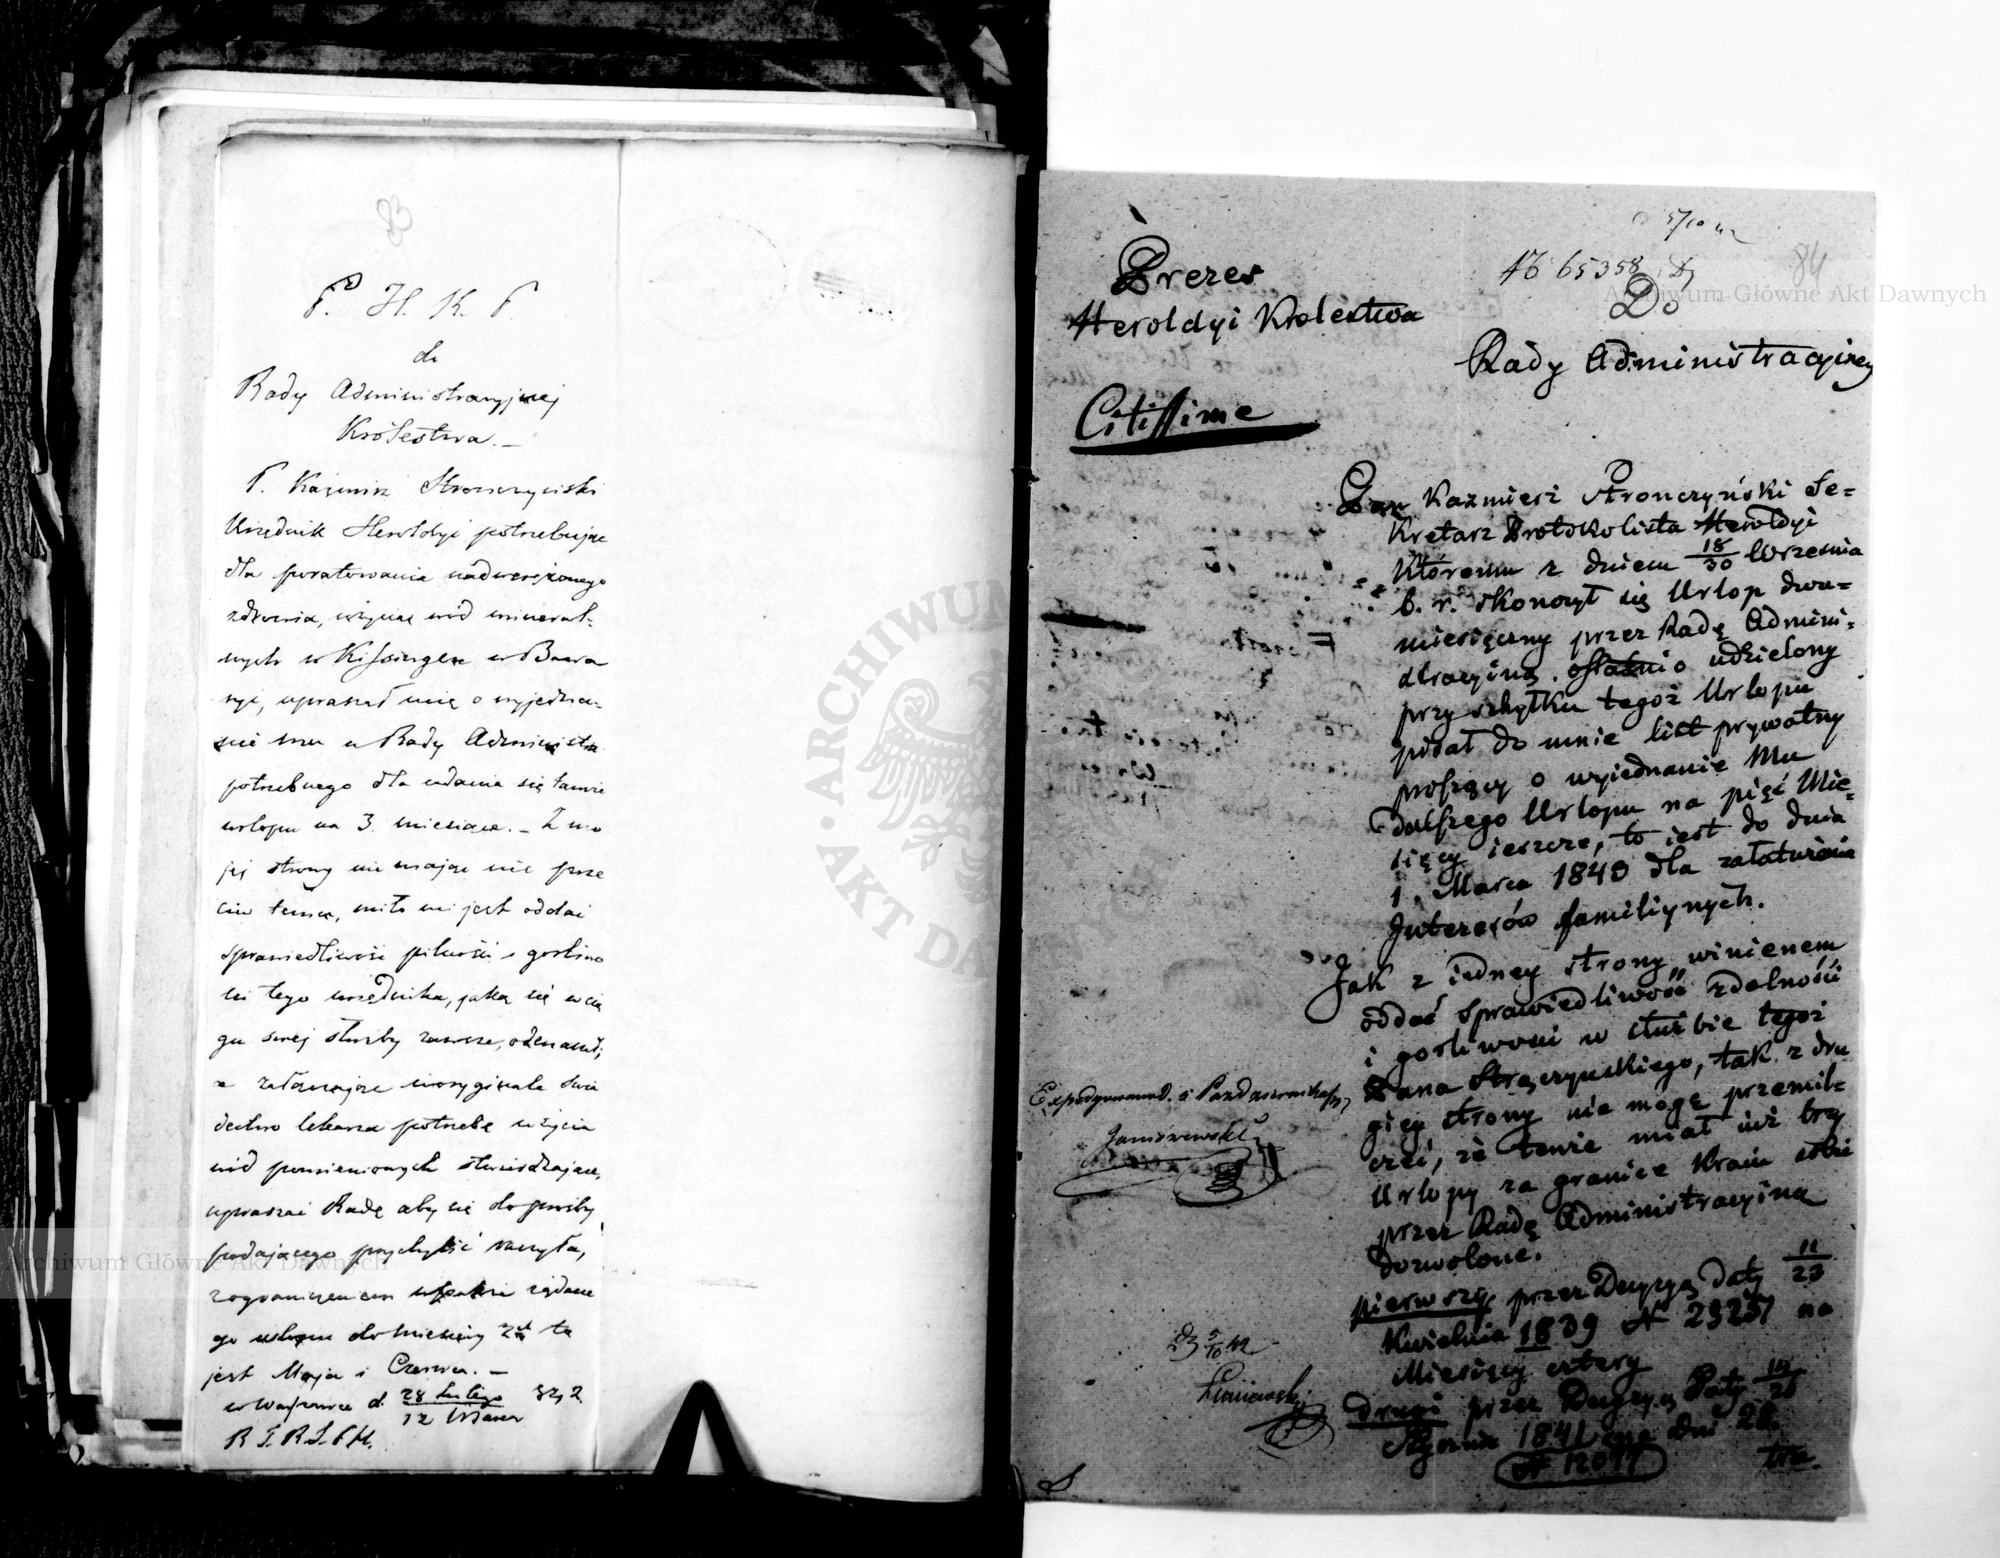 83
P. H. K. P.
do
Rady Administracyjnej
Królestwa. –
P. Kaźmirz Stronczyński
Urzędnik Heroldyi potrzebując
dla poratowania nadwerężonego
zdrowia, użycia wód mineral-
nych w Kissingen w Bawa
ryi, upraszał mię o wyjedna-
nie mu u Rady Administr.
potrzebnego dla udania się tamże
urlopu na 3. miesiące. – Z mo
jej strony nie mając nic prze
ciw temu, miło mi jest oddać
sprawiedliwość pilności i gorliwo
ści tego urzędnika, jaką się w cią
gu swej służby zawsze, odznaczał;
a załączając w oryginale świa
dectwo lekarza potrzebę użycia
wód pomienionych stwierdzające,
upraszać Radę aby się do prośby
podającego przychylić raczyła,
z ograniczeniem wszakże żądane
go urlopu do miesięcy 2ch to
jest Maja i Czerwca. –
w Warszawie d. 28 Lutego / 12 Marca 1842
R. T. R. S. P. H.
Prezes
Heroldyi Krolestwa
Citissime
5/10 42
№ 65358
84
Do
Rady Administracyiney
Pan Kazmierz Stronczyński Se=
kretarz Protokolista Heroldyi
któremu z dniem 18/30 Września
b. r. skonczył się Urlop dwu=
miesięczny przez Radę Admini=
stracyiną ostatnio udzielony
przy schyłku tegoż Urlopu
pisał do mnie list prywatny
proszący o wyiednanie Mu
dalszego Urlopu na pięć Mie=
sięcy ieszcze, to iest do dnia
1. Marca 1843 dla załatwienia
Interesów familiynych.
Jak z iedney strony winienem
oddać sprawiedliwość zdolności
i gorliwości w służbie tegoż
Pana Stronczynskiego, tak z dru
giey strony nie mogę przemil=
czeć, że tenże miał iuż trzy
Urlopy za granice Kraiu sobie
przez Radę Administracyiną
dozwolone.
pierwszy przez Decyzyą daty 11/23
Kwietnia 1839 № 23257 na
Miesięcy cztery
drugi przez Decyzyą Daty 14/26
Stycznia 1841 na dni 28.
№ 12017
trze.
Expedyowano d. 5 Pazdziernika
Janiszewski
d 5/10 42